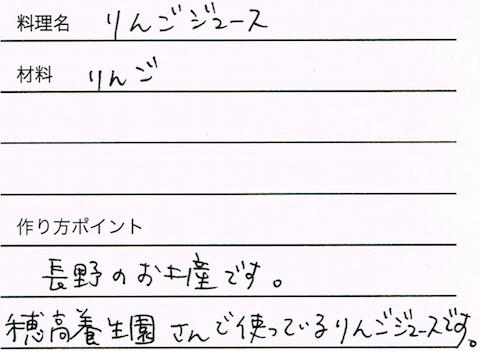 料理名 りんごジュース
材料 りんご
作り方ポイント
長野のお土産です。
穂高養生園さんで使っているりんごジュースです。